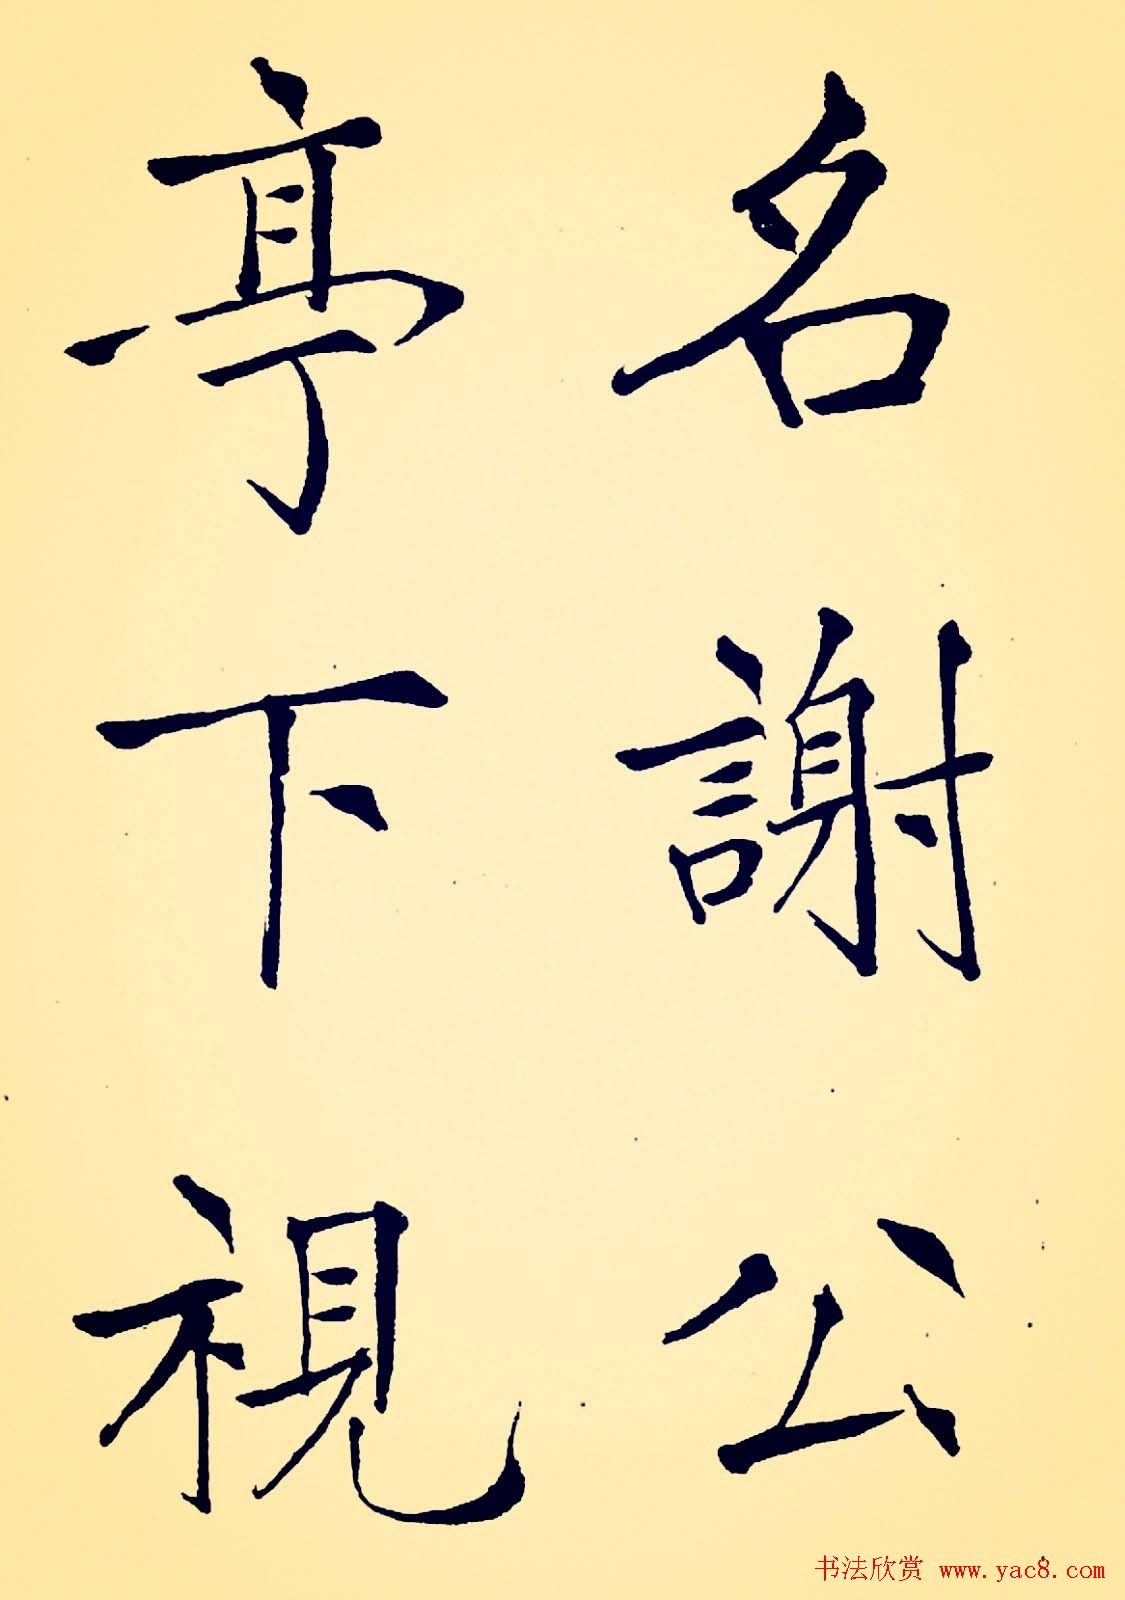 名謝公
亭下視
书法欣赏 www.yac8.com